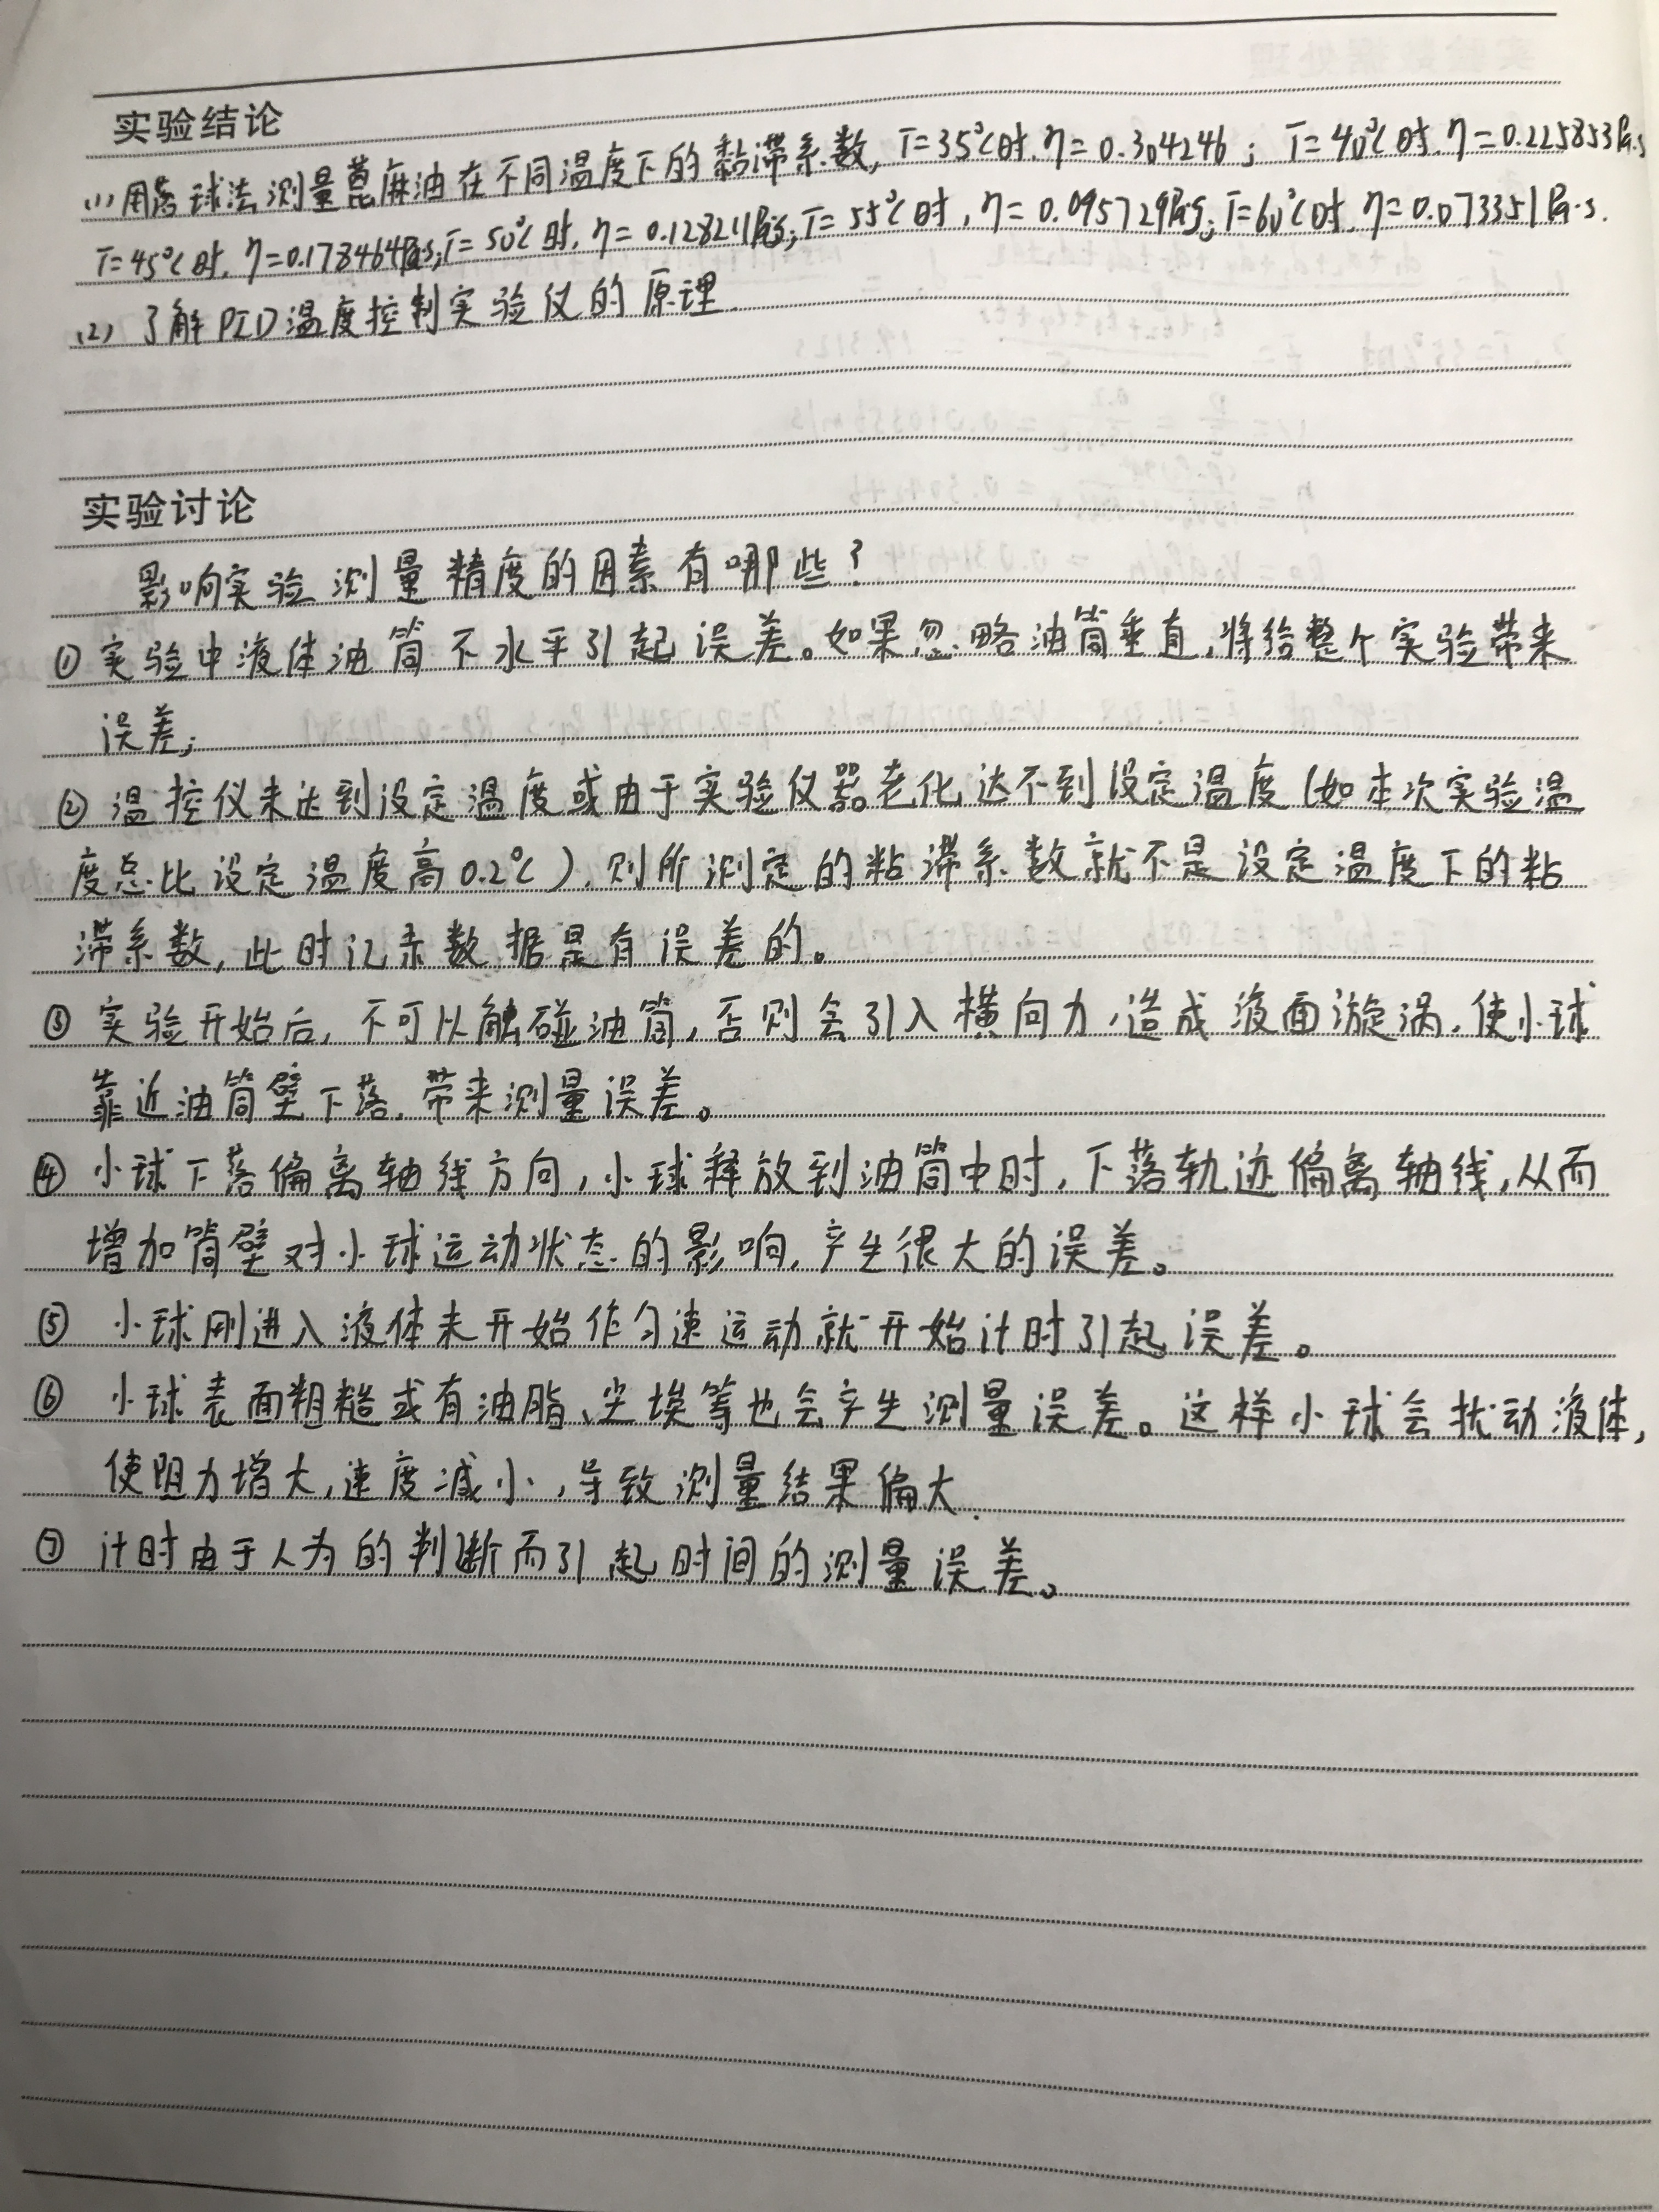 实验结论
(1) 用落球法测量蓖麻油在不同温度下的黏滞系数, T=35℃时, η=0.304246; T=40℃时, η=0.225853Pa·s
T=45℃时, η=0.178464Pa·s; T=50℃时, η=0.128211Pa·s; T=55℃时, η=0.095729Pa·s; T=60℃时, η=0.073351Pa·s.
(2) 了解PID温度控制实验仪的原理.
实验讨论
影响实验测量精度的因素有哪些?
① 实验中液体油筒不水平引起误差。如果忽略油筒垂直,将给整个实验带来
误差;
② 温控仪未达到设定温度或由于实验仪器老化达不到设定温度(如本次实验温
度总比设定温度高0.2℃),则所测定的粘滞系数就不是设定温度下的粘
滞系数,此时记录数据是有误差的。
③ 实验开始后,不可以触碰油筒,否则会引入横向力,造成液面漩涡,使小球
靠近油筒壁下落,带来测量误差。
④ 小球下落偏离轴线方向,小球释放到油筒中时,下落轨迹偏离轴线,从而
增加筒壁对小球运动状态的影响,产生很大的误差。
⑤ 小球刚进入液体未开始作匀速运动就开始计时引起误差。
⑥ 小球表面粗糙或有油脂、尘埃等也会产生测量误差。这样小球会扰动液体,
使阻力增大,速度减小,导致测量结果偏大.
⑦ 计时由于人为的判断而引起时间的测量误差。